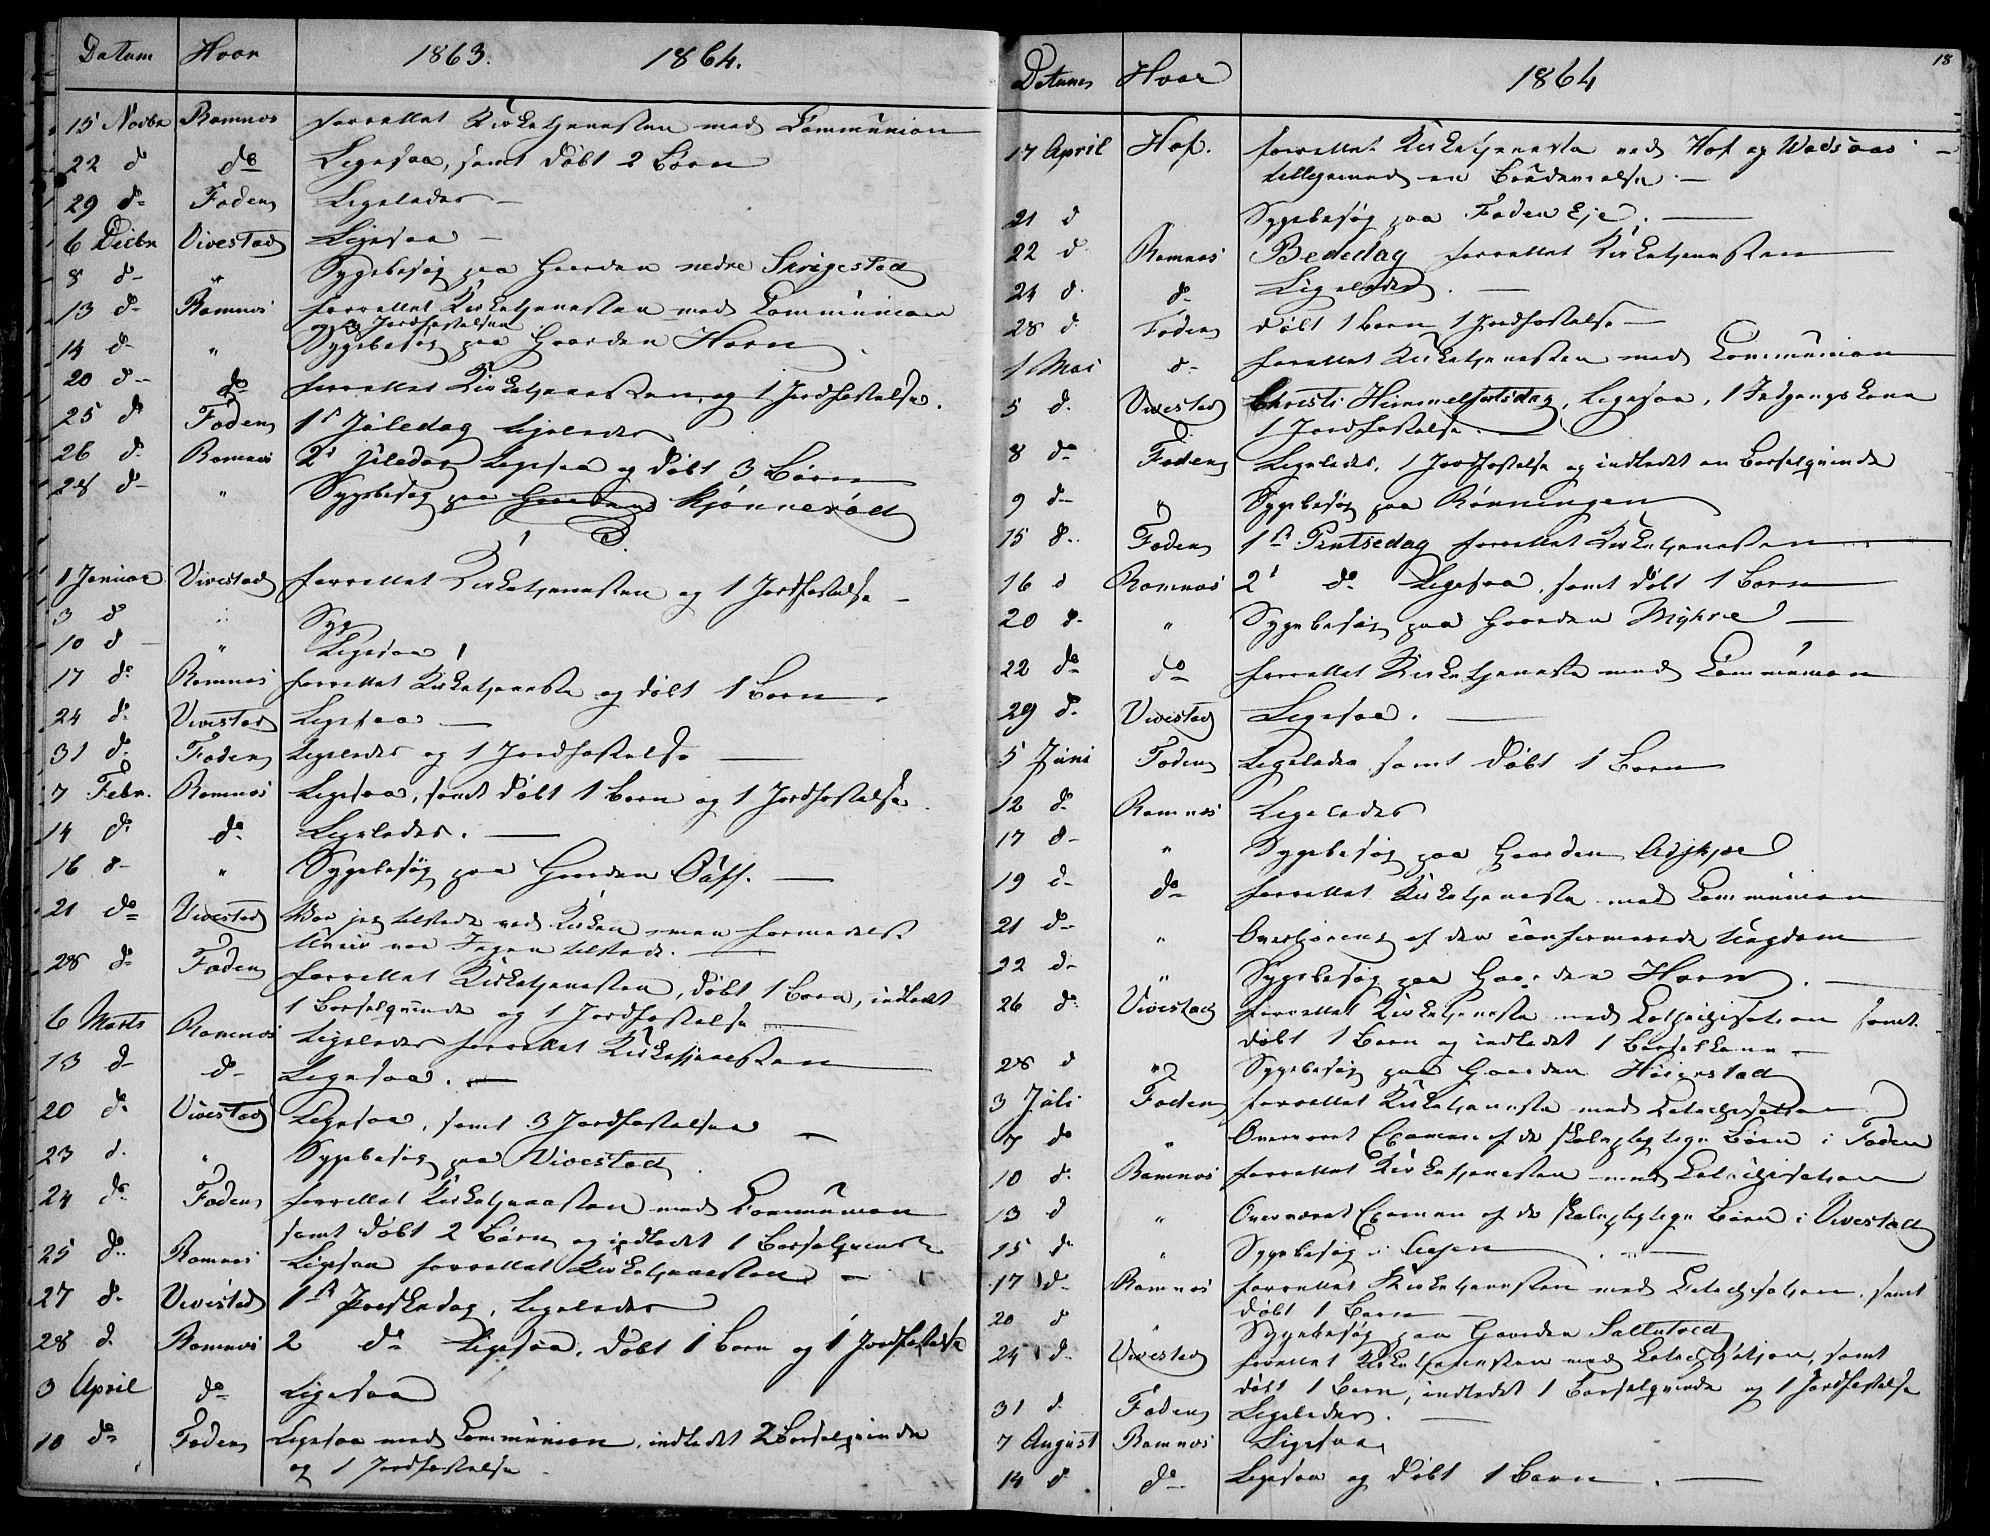 Datum Hvor 1863. 1864.
15 Novbr Ramnes forrettet Kirketjenesten med Communion
22 d do Ligesaa, samt døbt 2 Børn
29 do Foden Ligeledes —
6 Decbr Vivestad Ligesaa —
8 do " Sygebesøg paa Gaarden nedre
13 do Ramnes forrettet Kirketjenesten med Communion
og 3 Jordfæstelser
14 do " Sygebesøg paa Gaarden Horn
20 do do forrettet Kirketjenesten og 1 Jordfæstelse.
25 d Foden 1s Juledag Ligeledes
26 do Ramnes 2s Juledag Ligesaa og døbt 3 Børn
28 do " Sygebesøg paa Gaarden Kjønnerød
1 Januar Vivestad forrettet Kirketjenesten og 1 Jordfæstelse —
3 d " Syg
10 d " Ligesaa
17 do Ramnes forrettet Kirketjeneste og døbt 1 Barn
24 do Vivestad Ligesaa —
31 do Foden Ligeledes og 1 Jordfæstelse —
7 Febr. Ramnes Ligesaa, samt døbt 1 Barn og 1 Jordfæstelse
14 do do Ligeledes. —
16 do " Sygebesøg paa Gaarden —
21 do Vivestad War jeg tilstede ved Kirken men formedelst
Uveir var Ingen tilstede. —
28 do Foden forrettet Kirketjenesten, døbt 1 Barn, indledt
1 Barselqvinde og 1 Jordfæstelse —
6 Marts Ramnes Ligeledes forrettet Kirketjenesten
13 do do Ligesaa. —
20 do Vivestad Ligesaa, samt 3 Jordfæstelser —
23 d. " Sygebesøg paa Vivestad
24 do Foden forrettet Kirketjenesten med Communion
samt døbt 2 Børn og indledt 1 Barselqvinde
25 do Ramnes Ligesaa forrettet Kirketjenesten —
27 do Vivestad 1st Paaskedag, Ligeledes
28 d. Ramnes 2 do Ligesaa, døbt 1 Barn og 1 Jordfæstelse
3 April do Ligesaa
10 do Foden Ligesaa med Communion, indledet 2 Barselqvinder
og 1 Jordfæstelse
18
Datum Hvor 1864
17 April Hof. forrettet Kirketjeneste ved Hof og Wadsaas —
tilligemed en Brudevielse —
21 d Sygebesøg paa Foden Eje. —
22 d Ramnes Bededag forrettet Kirketjenesten
24 d. do Ligeledes. —
28 d Foden døbt 1 Barn 1 Jordfæstelse —
1 Mai do forrettet Kirketjenesten med Communion
5 d. Vivestad Christi Himmelfartsdag, Ligesaa, 1 Indgangskone
1 Jordfæstelse.
8 do Foden Ligeledes, 1 Jordfæstelse og indledet en Barselqvinde
9 do " Sygebesøg paa Rønningen
15 d. Foden 1st Pintsedag forrettet Kirketjenesten
16 d Ramnes 2s do Ligesaa, samt døbt 1 Barn
20 d. " Sygebesøg paa Gaarden Myhre —
22 do do forrettet Kirketjeneste med Communion
29 d. Vivestad Ligesaa. —
5 Juni Foden Ligeledes samt døbt 1 Barn
12 do Ramnes Ligeledes
17 do " Sygebesøg paa Gaarden Askjær
19 do do forrettet Kirketjeneste med Communion
21 do " Overhørene af den confirmerede Ungdom
22 do " Sygebesøg paa Gaarden Horn. —
26 do Vivestad forrettet Kirketjeneste med Catechisation samt
døbt 1 Barn og indledet 1 Barselkone —
28 d " Sygebesøg paa Gaarden
3 Juli Foden forrettet Kirketjeneste med Catechisation
7 do " Overværet Examen af de skolepligtige Børn i Foden
10 d. Ramnes forrettet Kirketjenesten med Catechisation
13 d " Overværet Examen af de skolepligtige Børn i Vivestad
15 do " Sygebesøg i
17 do Ramnes forrettet Kirketjenesten med Catechisation, samt
døbt 1 Barn
20 d " Sygebesøg paa Gaarden
24 do Vivestad forrettet Kirketjenesten med Catechisation, samt
døbt 1 Barn, indledet 1 Barselqvinde og 1 Jordfæstelse
31 d. Foden Ligeledes. —
7 August Ramnes Ligesaa
14 d do Ligesaa og døbt 1 Barn. —